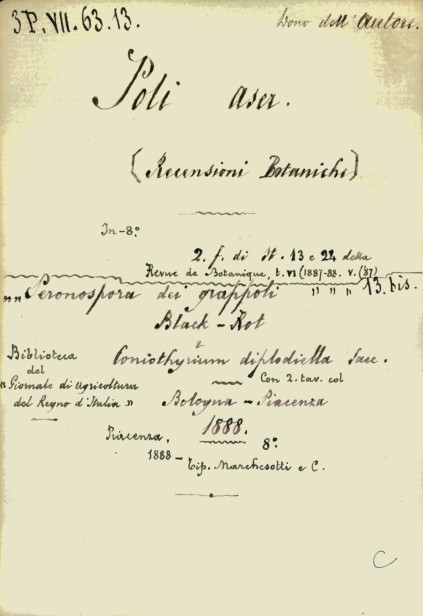 3P.VII.63.13.
Dono dell' Autore.
Poli aser.
(Recensioni Botaniche)
In-8.°
2. f. di St. 13 e 24 della
Revue de Botanique, t. VI (1887-88. v. (87)
„„ Peronospora dei grappoli „ „ „ 13.bis.
Black-Rot
e
Coniothyrium diplodiella Sacc.
Biblioteca
del
"Giornale di Agricoltura
del Regno d'Italia"
Con 2. tav. col
Bologna - Piacenza
1888.
8.°
Piacenza,
1888 -
Tip. Marchesotti e C.
C